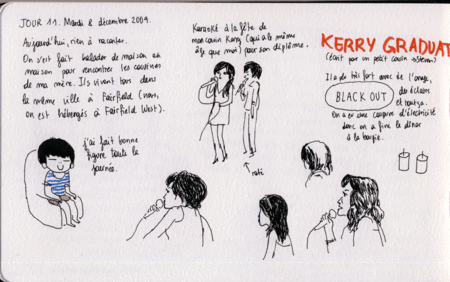 JOUR 11. Mardi 8 décembre 2009.
Aujourd'hui, rien à raconter.
On s'est fait balader de maison en
maison pour rencontrer les cousines
de ma mère. Ils vivent tous dans
la même ville à Fairfield (nous,
on est hébergés à Fairfield West).
j'ai fait bonne
figure toute la
journée.
Karaoké à la fête de
mon cousin Kerry (qui a le même
âge que moi) pour son diplôme.
raté
KERRY GRADUAT
(écrit par un petit cousin Steven)
Il a plu très fort avec de l'orage,
des éclairs
BLACK OUT
et toutça.
On a eu une coupure d'électricité
donc on a fini le dîner
à la bougie.